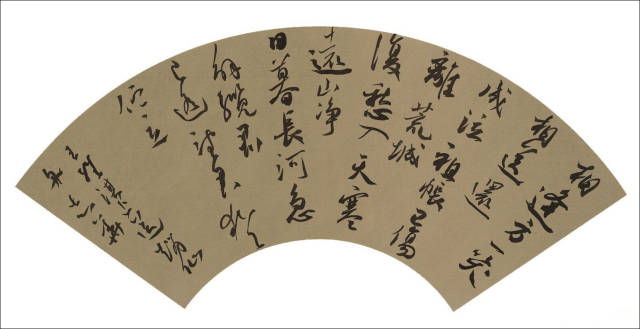 相逢方一笑
相送還
成泣祖帳已傷
離荒城
復愁入天寒
遠山净
日暮長河急
解纜君
已遙望君猶
佇立
王維淇上送趙仙
舟